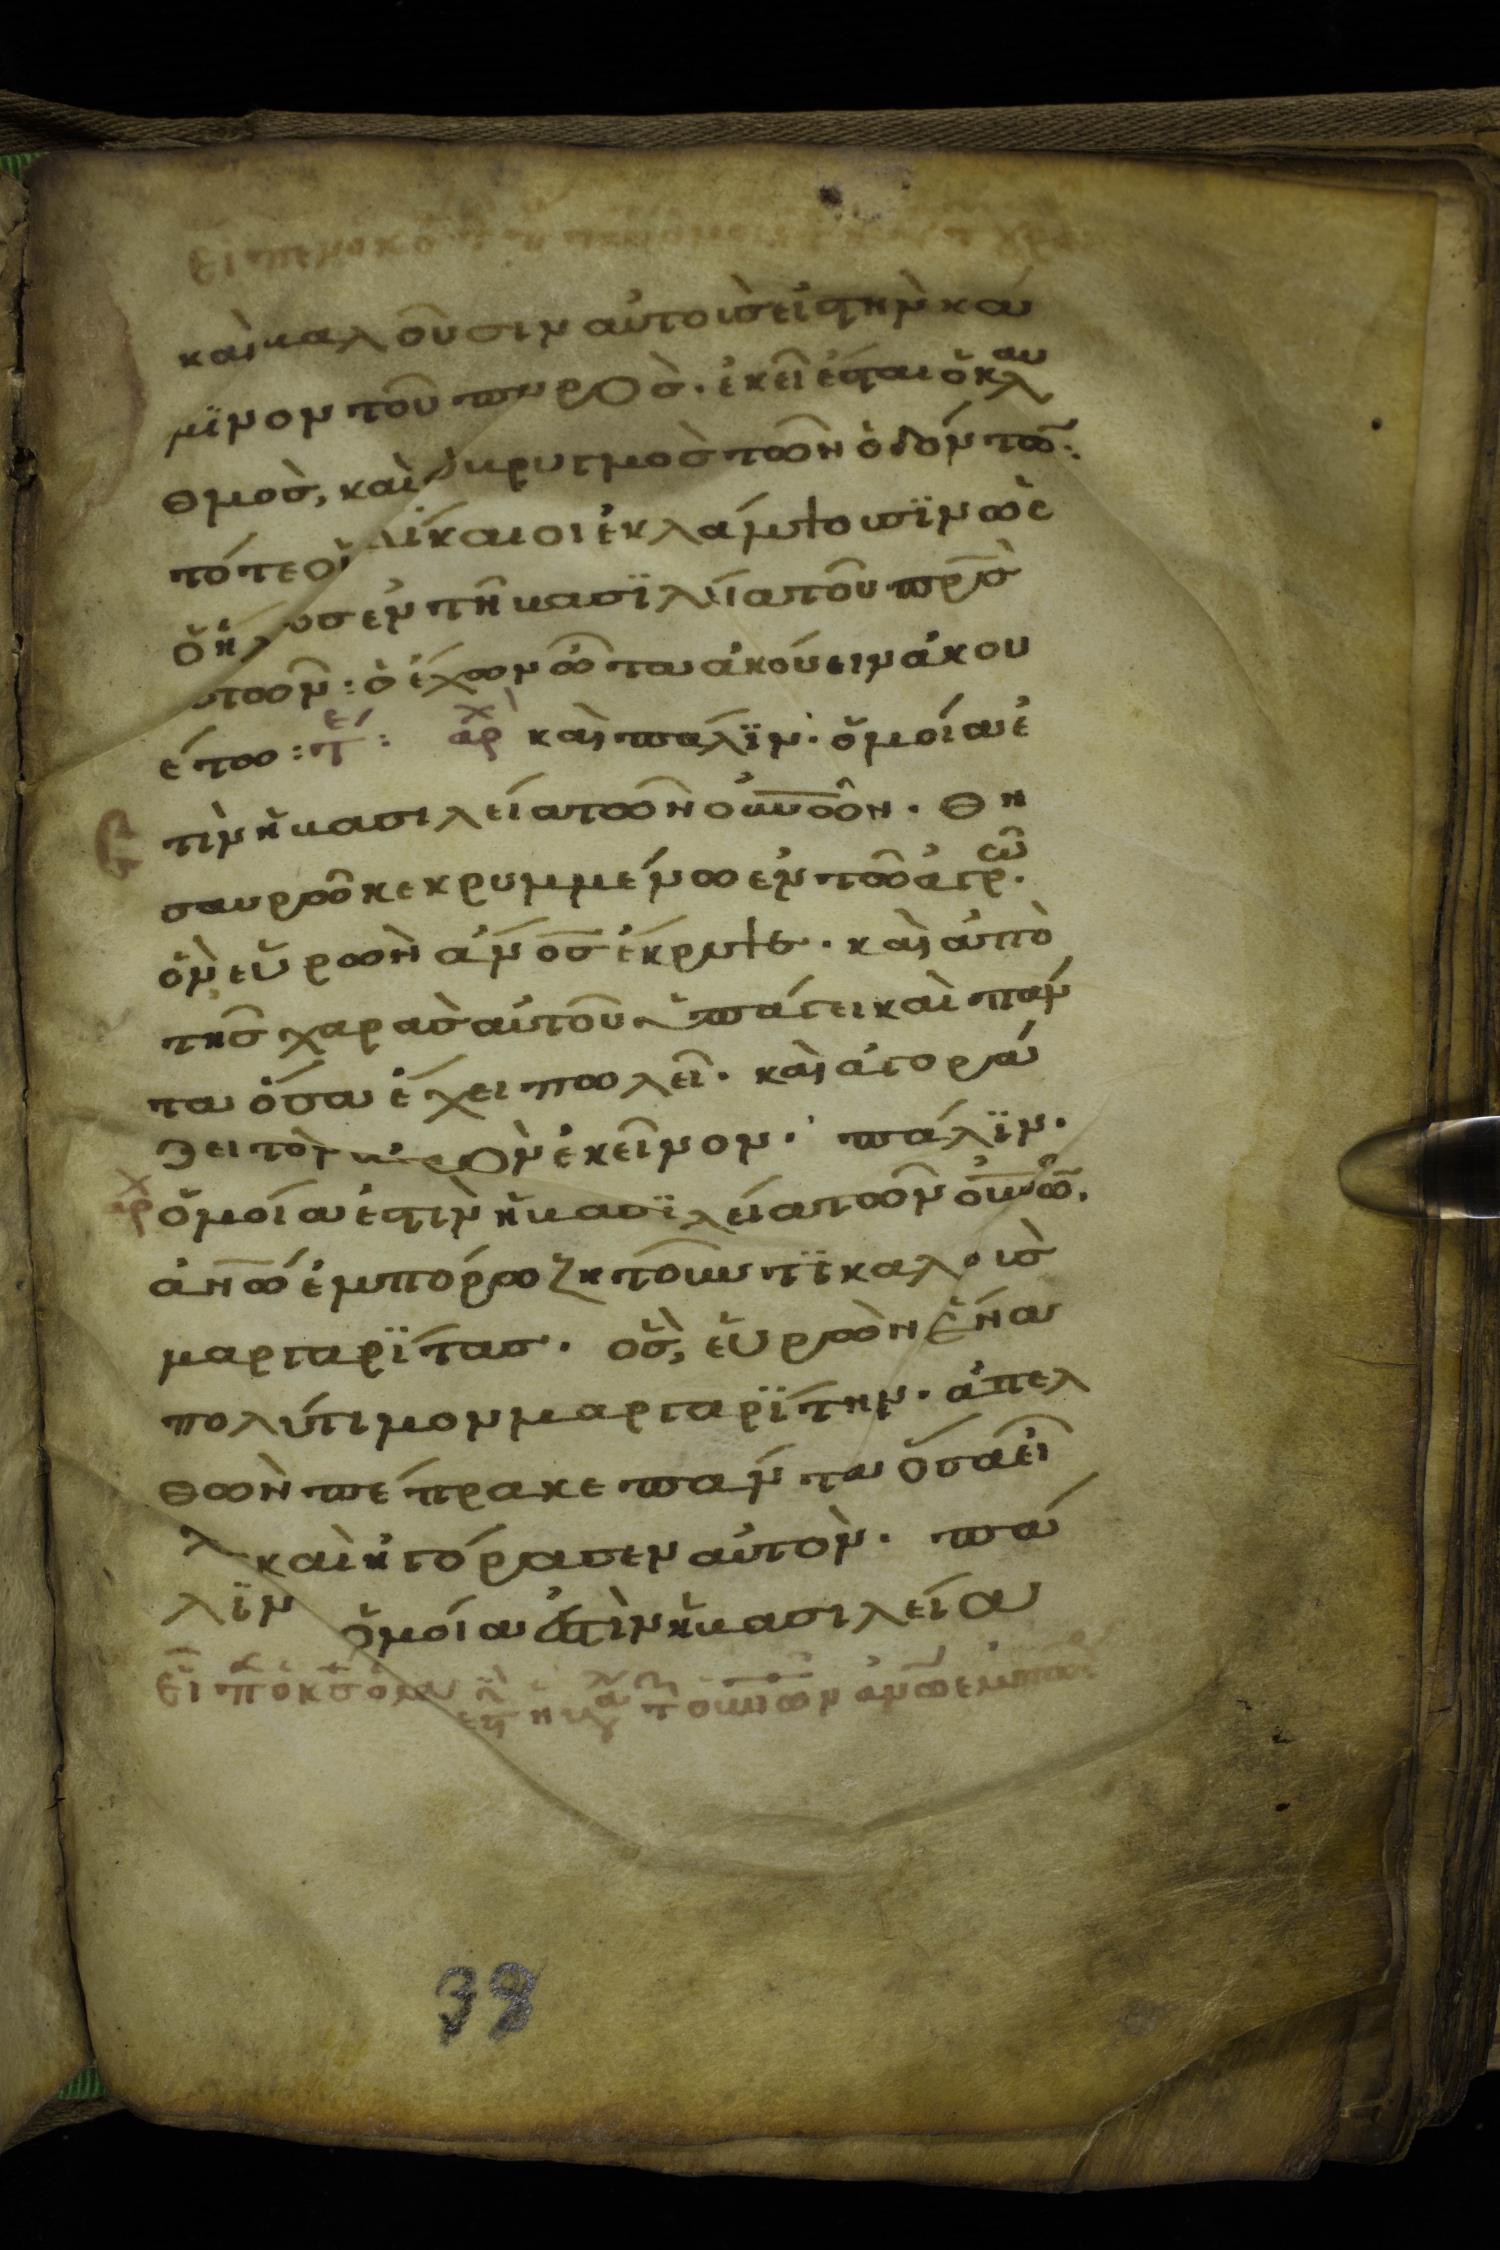 καὶ βαλοῦσιν αὐτοὺς εἰς τὴν κα
μϊνον τοῦ πυρὸς· ἐκεῖ ἔσται ὁ κλαυ
θμὸς, καὶ ὁ βρυγμὸς τῶν ὀδόντων:
τότε οἱ δίκαιοι ἐκλάμψουσϊν ὡς
ὁ ἥλιος ἐν τῆ βασϊλεία τοῦ πρς
αὐτῶν: ὁ ἔχων ὦτα ἀκούειν ἀκου
έτω: τε: αρχ καὶ πάλϊν· ὁμοία ἐ
τὶν ἡ βασιλεία τῶν οὐνῶν· θη
σαυρῶ κεκρυμμένω ἐν τῶ ἀγρῶ·
ὃν εὑρὼν ἀνος ἔκρυψε· καὶ ἀπὸ
τῆς χαρᾶς αὐτοῦ ὑπάγει καὶ πάν
τα ὅσα ἔχει πωλεῖ· καὶ ἀγορά
ζει τὸν ἀγρὸν ἐκεῖνον· πάλϊν·
αρχ ὁμοία ἐστὶν ἡ βασϊλεία τῶν οὐνῶν·
ἀνω ἐμπόρω ζητοῦντϊ καλοὺς
μαργαρϊτας· ὃς, εὑρὼν ἕνα
πολύτιμον μαργαρϊτην· ἀπελ
θὼν πέπρακε πάντα ὅσα εἶ
χε καὶ ἠγόρασεν αὐτὸν· πά
λϊν ὁμοία ἐστὶν ἡ βασιλεία
38